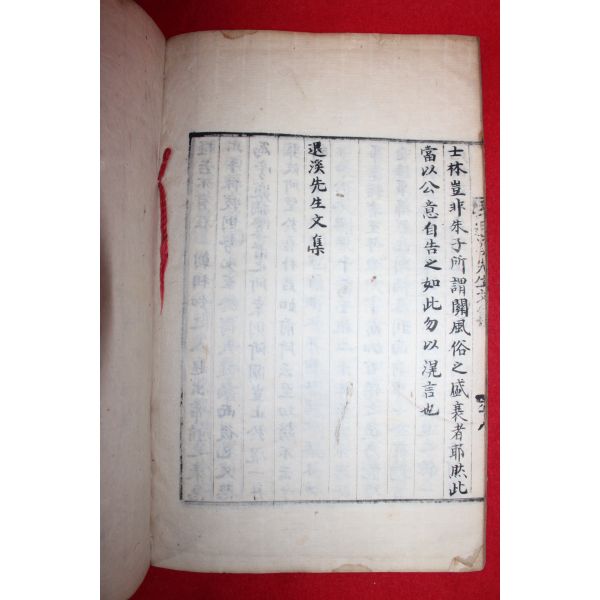 士林豈非朱子所謂關風俗之盛衰者耶然此
當以公意自告之如此勿以滉言也
退溪先生文集